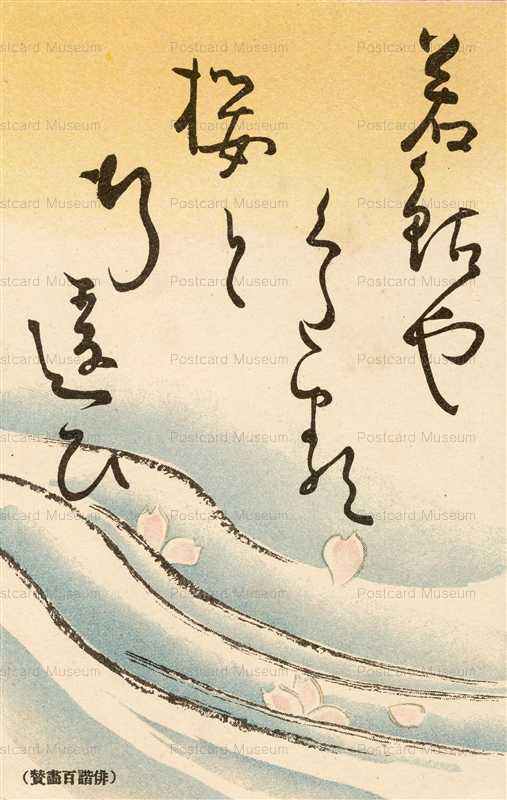 若鮎や
くたる
桜と
行
違ひ
(俳諧百畫賛)
Postcard Museum